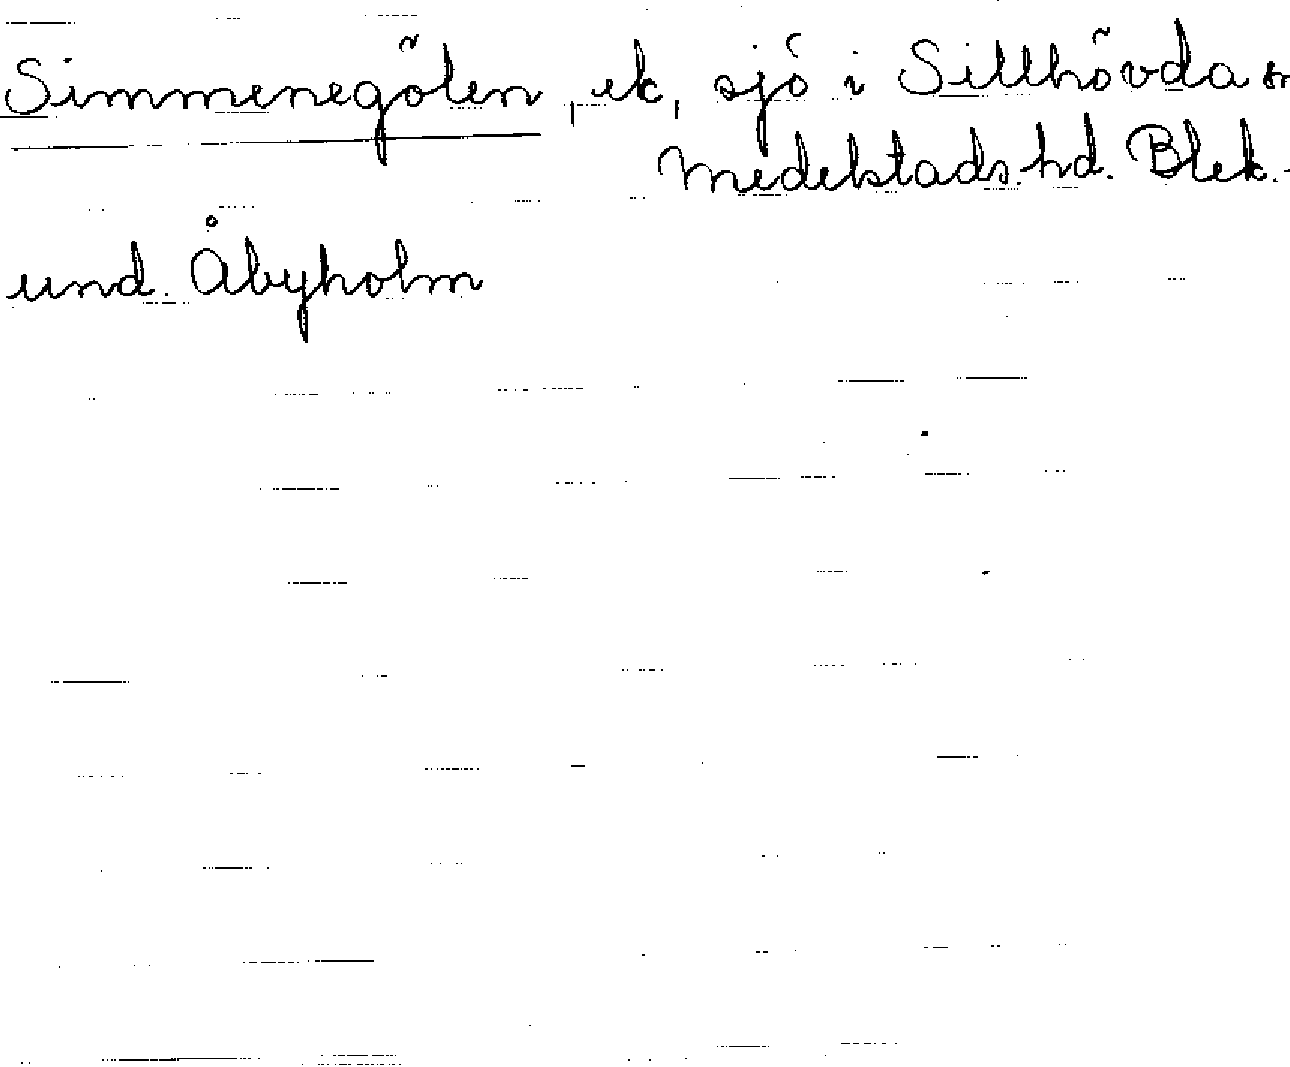 Simmenegölen, ek, sjö i Sillhövda sn
Medelstads hd. Blek.
und. Åbyholm